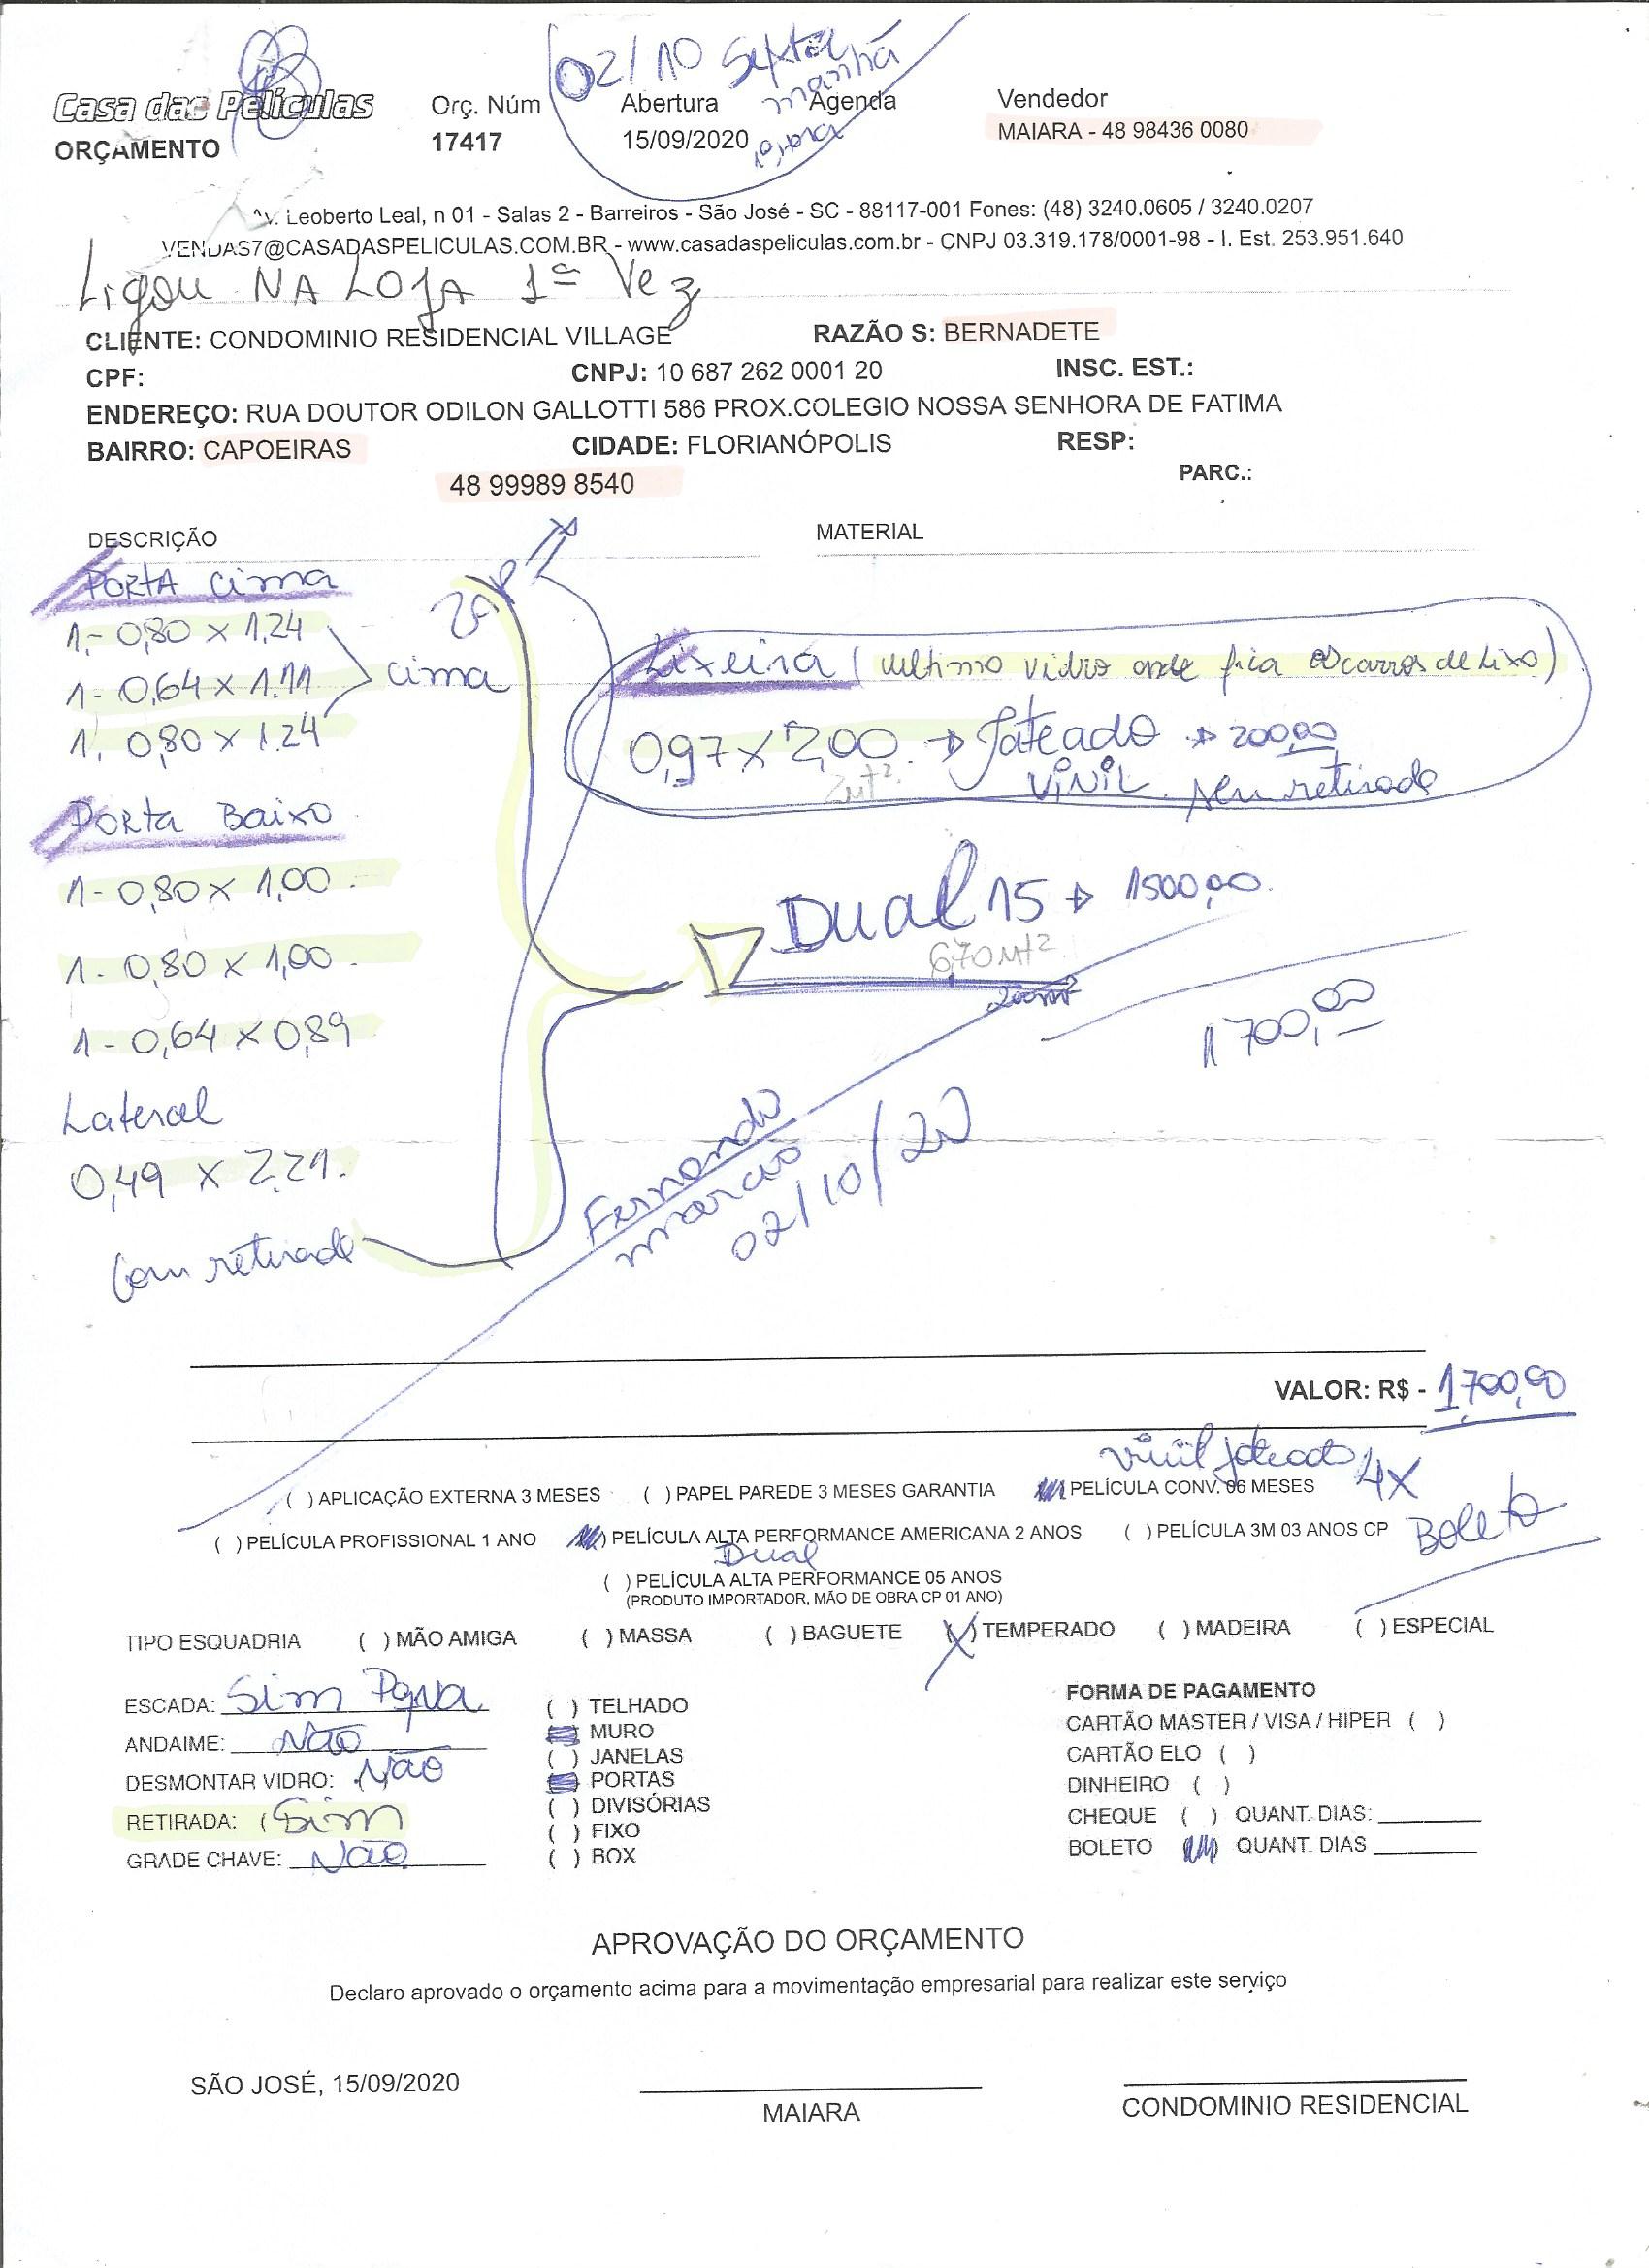 02/10 Sexta
manhã
1ª hora
Casa das Películas
Orç. Núm Abertura Agenda Vendedor
ORÇAMENTO 17417 15/09/2020 MAIARA - 48 98436 0080
Av. Leoberto Leal, n 01 - Salas 2 - Barreiros - São José - SC - 88117-001 Fones: (48) 3240.0605 / 3240.0207
VENDAS7@CASADASPELICULAS.COM.BR - www.casadaspeliculas.com.br - CNPJ 03.319.178/0001-98 - I. Est. 253.951.640
Ligou NA LOJA 1ª Vez
CLIENTE: CONDOMINIO RESIDENCIAL VILLAGE RAZÃO S: BERNADETE
CPF: CNPJ: 10 687 262 0001 20 INSC. EST.:
ENDEREÇO: RUA DOUTOR ODILON GALLOTTI 586 PROX.COLEGIO NOSSA SENHORA DE FATIMA
BAIRRO: CAPOEIRAS CIDADE: FLORIANÓPOLIS RESP:
48 99989 8540 PARC.:
DESCRIÇÃO MATERIAL
PORTA Cima
1- 0,80 x 1,24
1- 0,64 x 1.11
1. 0,80 x 1.24
cima
Zap
Lixeira (ultimo vidro onde fica os carros de lixo)
0,97 x 2,00. → Jateado → 200,00
2mt². VINIL sem retirada
PORTA BAIXO
1- 0,80 x 1,00.
1- 0,80 x 1,00.
1- 0,64 x 0,89
Dual 15 → 1500,00.
6,70 mt²
1700,00
Lateral
0,49 x 2,21.
Com retirada
Fernando
marcio
02/10/20
VALOR: R$ - 1,700,00
vinil jateado 4X
( ) APLICAÇÃO EXTERNA 3 MESES ( ) PAPEL PAREDE 3 MESES GARANTIA PELÍCULA CONV. 06 MESES
( ) PELÍCULA PROFISSIONAL 1 ANO PELÍCULA ALTA PERFORMANCE AMERICANA 2 ANOS ( ) PELÍCULA 3M 03 ANOS CP Boleto
Dual
( ) PELÍCULA ALTA PERFORMANCE 05 ANOS
(PRODUTO IMPORTADOR, MÃO DE OBRA CP 01 ANO)
TIPO ESQUADRIA ( ) MÃO AMIGA ( ) MASSA ( ) BAGUETE (X) TEMPERADO ( ) MADEIRA ( ) ESPECIAL
ESCADA: Sim
ANDAIME: Não
DESMONTAR VIDRO: Não
RETIRADA: ( Sim
GRADE CHAVE: Não
( ) TELHADO
MURO
( ) JANELAS
PORTAS
( ) DIVISÓRIAS
( ) FIXO
( ) BOX
FORMA DE PAGAMENTO
CARTÃO MASTER / VISA / HIPER ( )
CARTÃO ELO ( )
DINHEIRO ( )
CHEQUE ( ) QUANT. DIAS:
BOLETO QUANT. DIAS
APROVAÇÃO DO ORÇAMENTO
Declaro aprovado o orçamento acima para a movimentação empresarial para realizar este serviço
SÃO JOSÉ, 15/09/2020
MAIARA
CONDOMINIO RESIDENCIAL